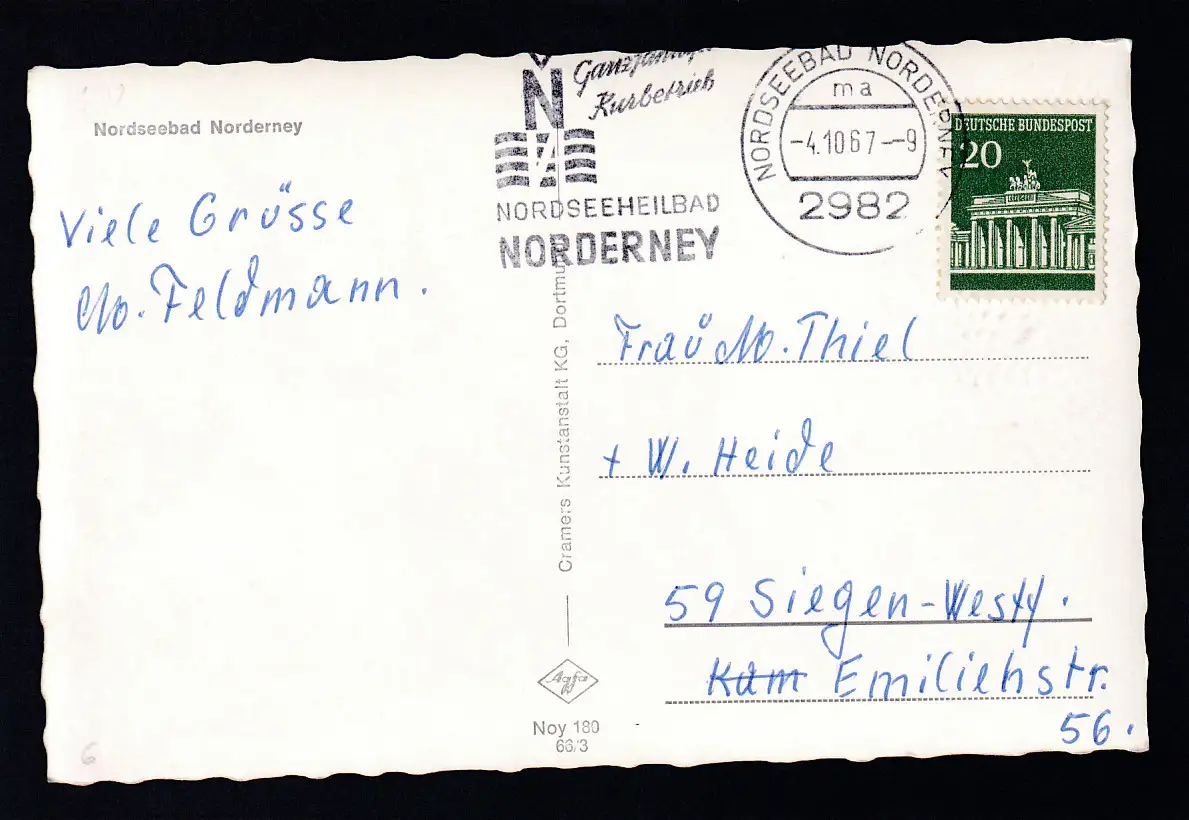 Nordseebad Norderney
Viele Grüsse
M. Feldmann.
N
Ganzjähriger
Kurbetrieb
NORDSEEHEILBAD
NORDERNEY
NORDSEEBAD NORDERNEY
ma
-4.10.67--9
2982
DEUTSCHE BUNDESPOST
20
Cramers Kunstanstalt KG, Dortmund
Agfa
Noy 180
66/3
Fraŭ M. Thiel
+ W. Heide
59 Siegen-Westf.
Kam Emilienstr.
56.
6